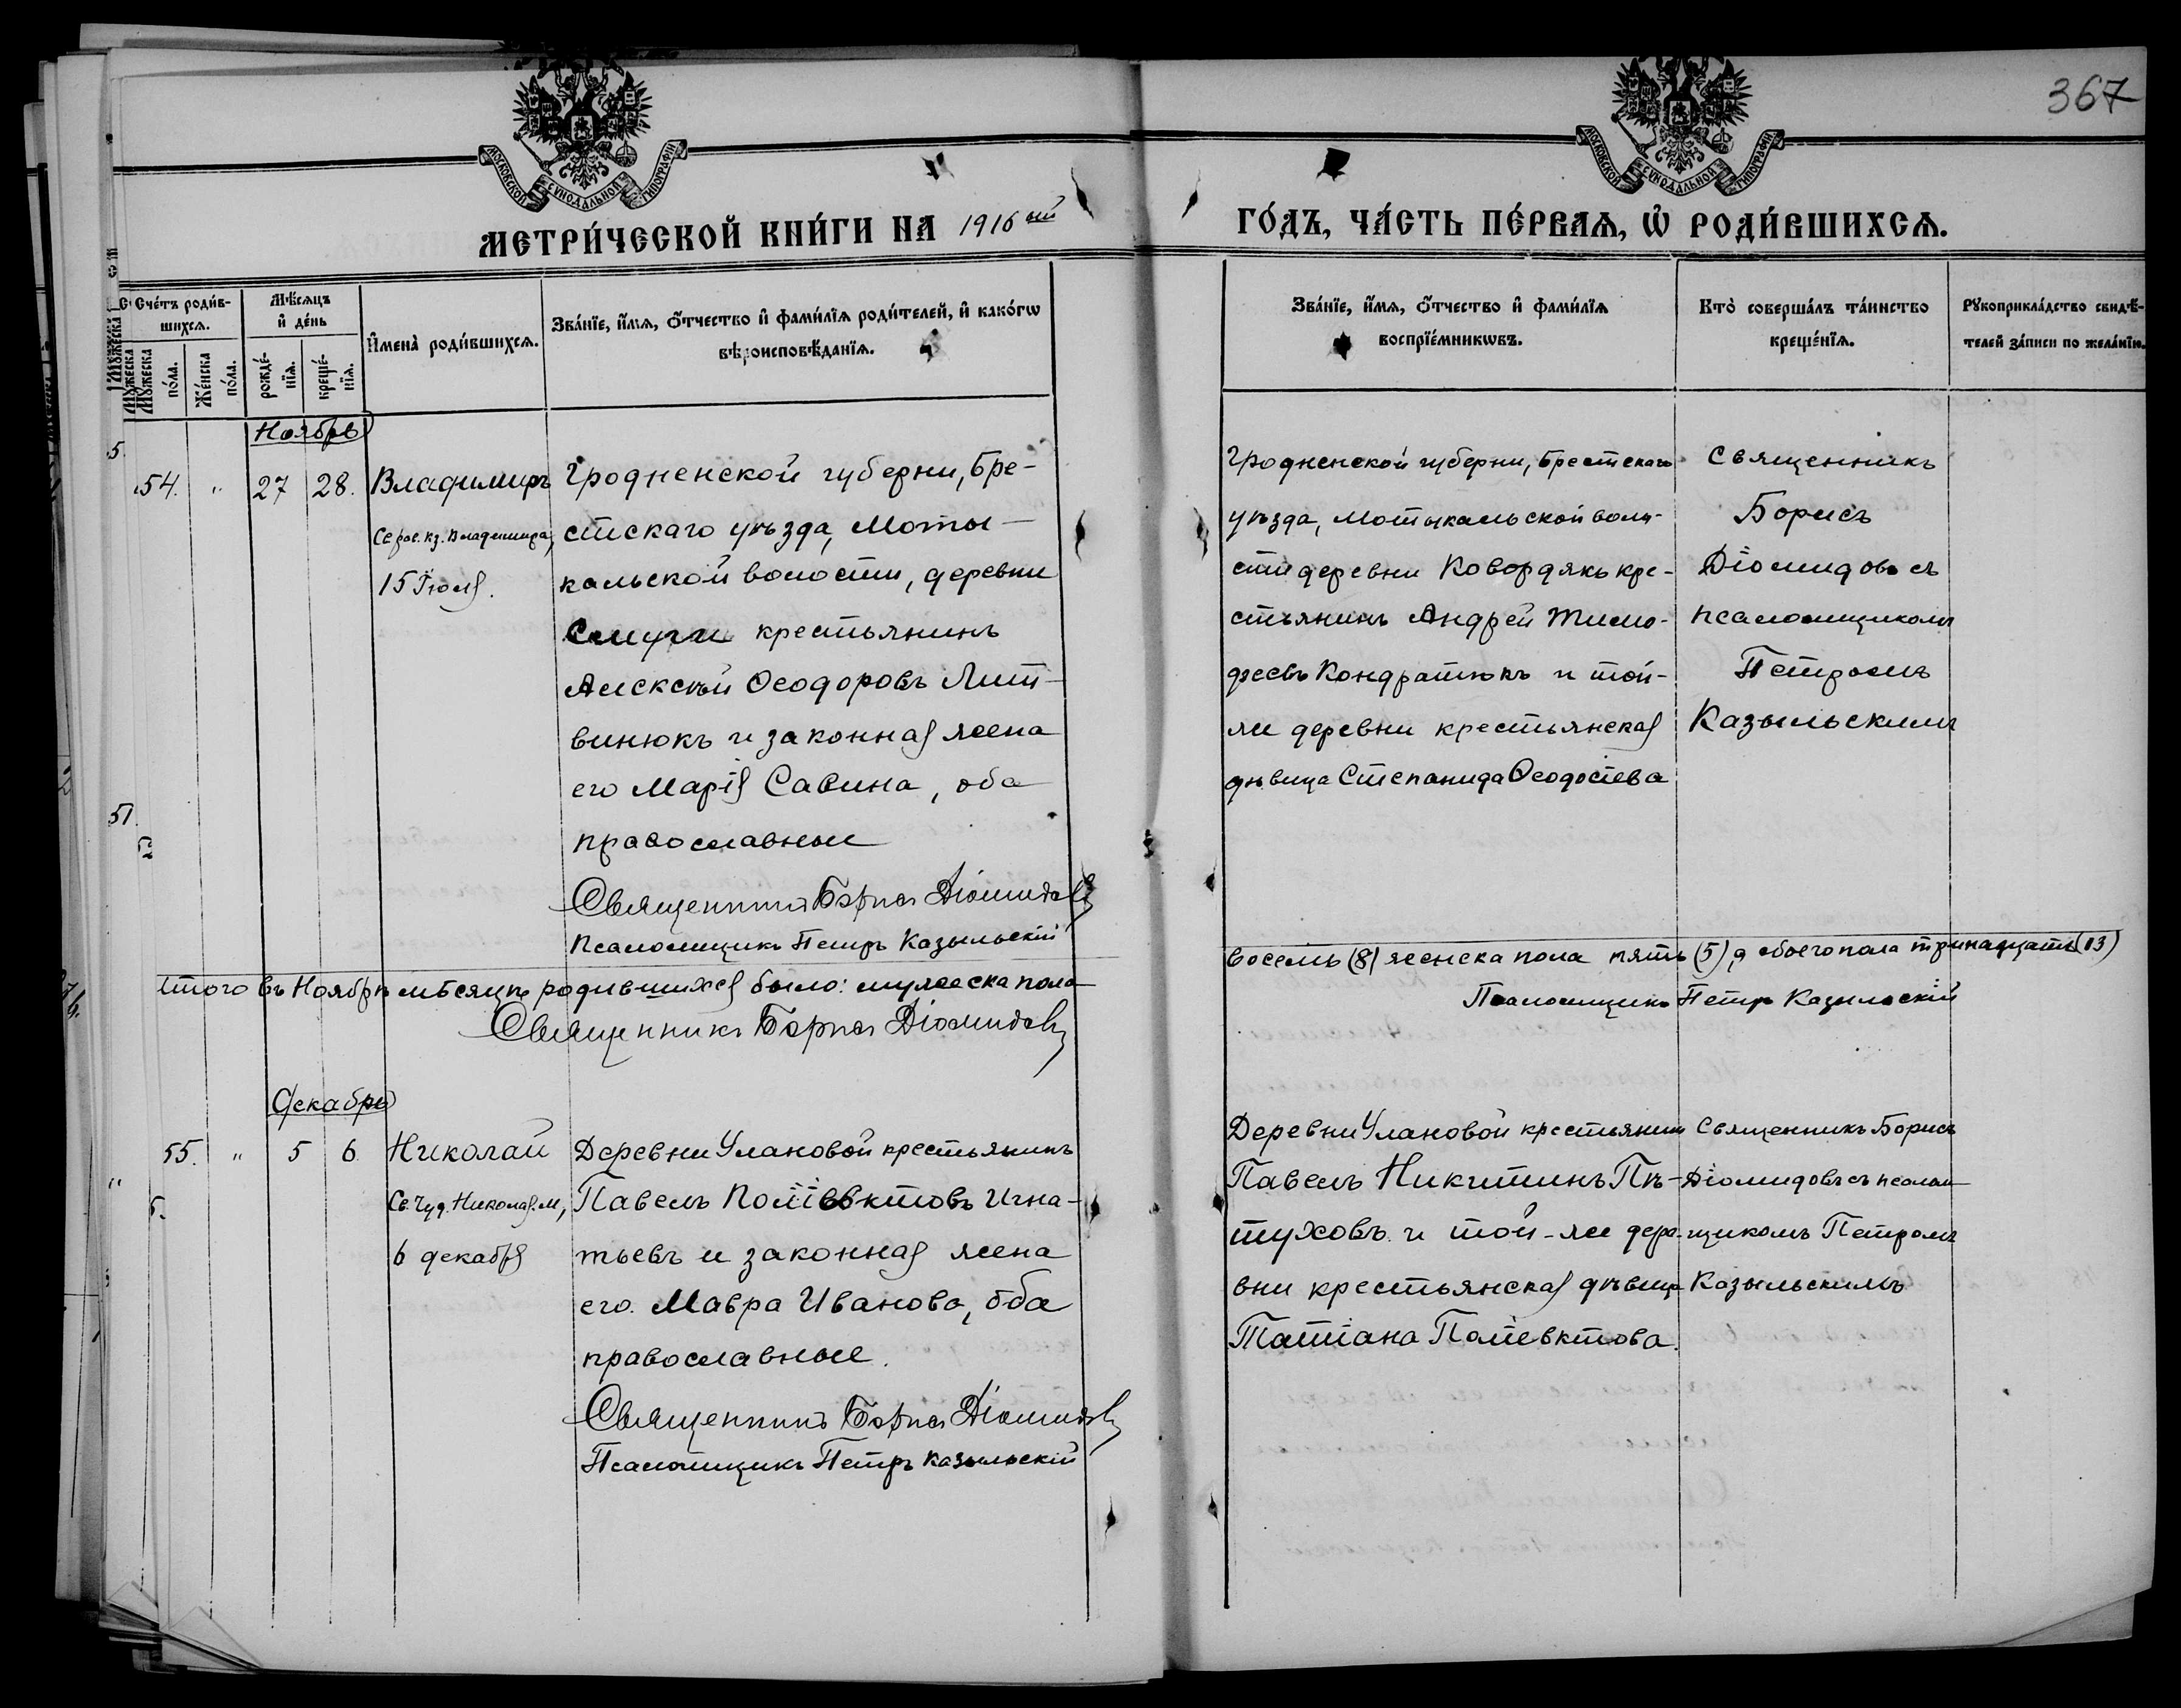 367
МОСКОВСКОЙ СУНОДАЛЬНОЙ ТИПОГРАФІИ
МОСКОВСКОЙ СУНОДАЛЬНОЙ ТИПОГРАФІИ
МЕТРИ́ЧЕСКОЙ КНИ́ГИ НА 1916ый
ГО́ДЪ, ЧА́СТЬ ПЕ́РВАѦ, Ѡ҆ РОДИ́ВШИХСѦ.
Сче́тъ роди́в-
шихсѧ.
Мѣ́сѧцъ
и҆ де́нь
И҆мена̀ роди́вшихсѧ.
Зва́нїе, и҆́мѧ, ѻ҆́тчество и҆ фами́лїѧ роди́телей, и҆ како́гѡ
вѣроисповѣ́данїѧ.
Мꙋ́жеска
по́ла.
Же́нска
по́ла.
рожде́-
нїѧ.
креще́-
нїѧ.
Зва́нїе, и҆́мѧ, ѻ҆́тчество и҆ фами́лїѧ
воспрїе́мникѡвъ.
Кто̀ соверша́лъ та́инство
креще́нїѧ.
Рꙋкоприкла́дство свидѣ́-
телей за́писи по жела́нїю.
Ноябрь
54. " 27 28. Владимиръ
Св рав. кз. Владимира,
15 Іюля.
Гродненской губерни, Бре-
стскаго уѣзда, Моты-
кальской волости, деревни
Смуги крестьянинъ
Алексѣй Ѳеодоровъ Лит-
винюкъ и законная жена
его Марія Савина, оба
православные
Священникъ Борисъ Діомидовъ
Псаломщикъ Петръ Казыльскій
Гродненской губерни, Брестскаго
уѣзда, Мотыкальской воло-
сти деревни Ковордякъ кре-
стьянинъ Андрей Тимо-
феевъ Кондратюкъ и той-
же деревни крестьянская
дѣвица Степанида Ѳеодосіева
Священникъ
Борисъ
Діомидовъ съ
псаломщикомъ
Петромъ
Казыльскимъ
Итого въ Ноябрѣ мѣсяцѣ родившихся было: мужеска пола
восемь (8) женска пола пять (5), а обоего пола тринадцать (13)
Священникъ Борисъ Діомидовъ
Псаломщикъ Петръ Казыльскій
Декабрь
55. " 5 6 Николай
Св. Чуд. Николая. М,
6 декабря
Деревни Улановой крестьянинъ
Павелъ Поліевктовъ Игна-
тьевъ и законная жена
его. Мавра Иванова, оба
православные.
Священникъ Борисъ Діомидовъ
Псаломщикъ Петръ Казыльскій
Деревни Улановой крестьянинъ
Павелъ Никитинъ Пѣ-
туховъ и той-же дере-
вни крестьянская дѣвица
Татіана Поліевктова.
Священникъ Борисъ
Діомидовъ съ псалом
щикомъ Петромъ
Казыльскимъ